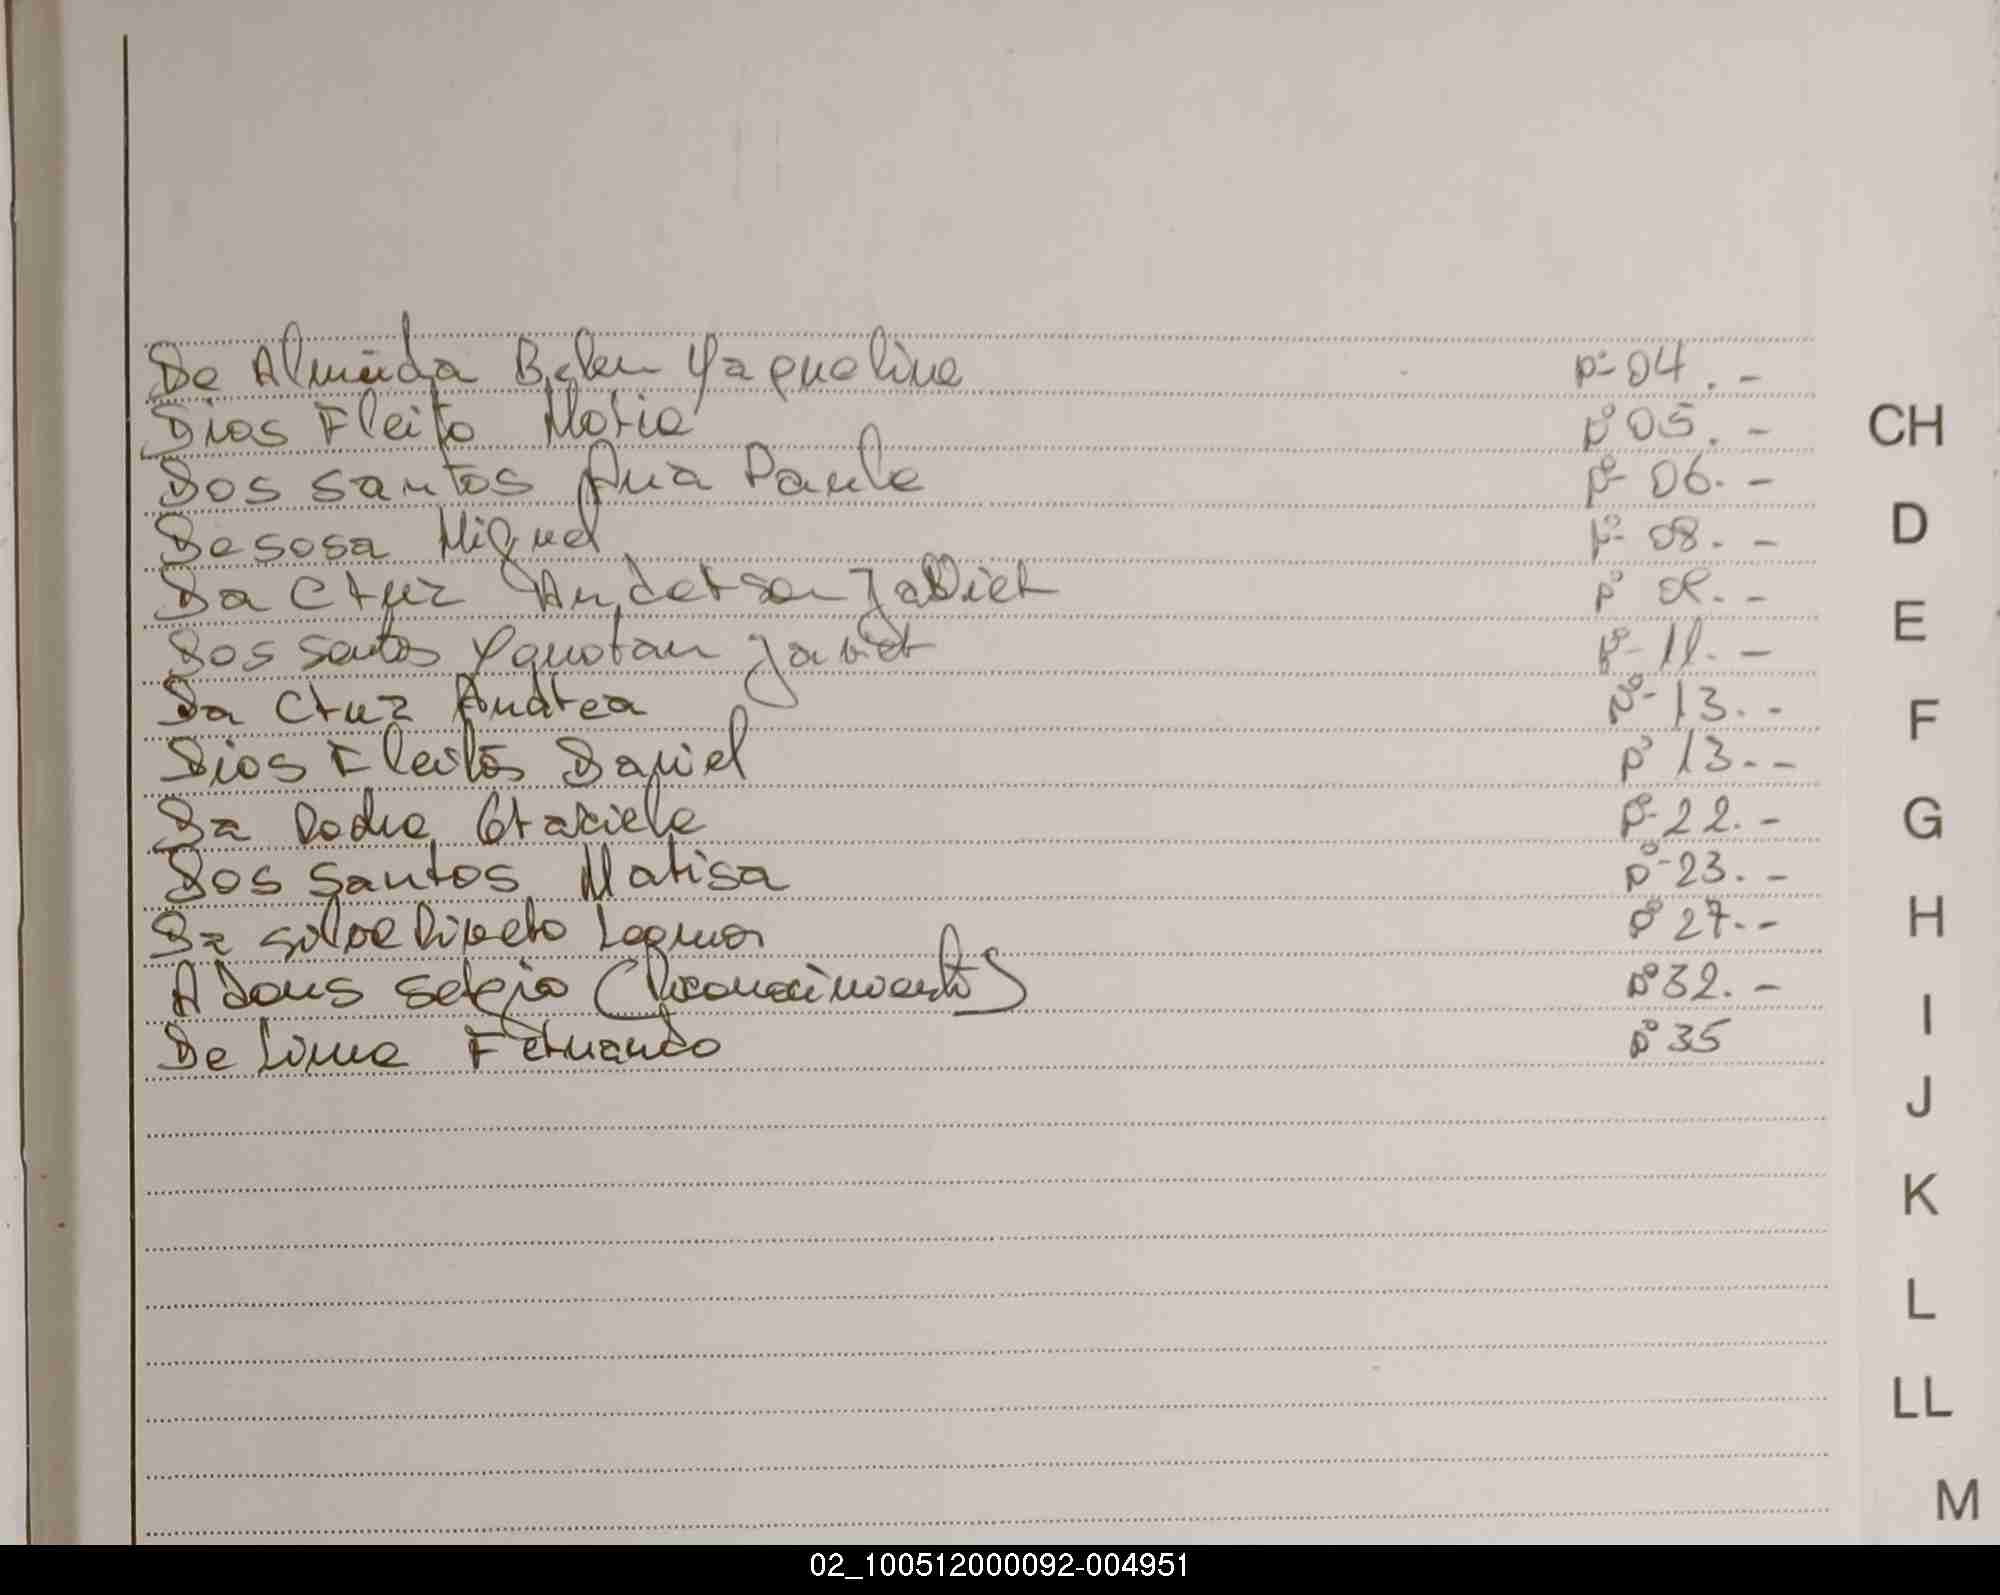 De Almeida Belen Yaqueline pº 04.-
CH
Dios Fleita Maria pº 05.-
Dos santos Ana Paula pº 06.-
D
De sosa Miguel pº 08.-
Da Cruz Anderson Javier pº
E
Dos santos Yonotan Javier pº 11.-
Da Cruz Andrea pº 13.-
F
Dios Fleitas Daniel pº 13.-
Da Graciela pº 22.-
G
Dos santos Marisa pº 23.-
Da silva pº 27.-
H
Adous sergio (Reconocimiento) pº 32.-
I
De Lima Fernando pº 35
J
K
L
LL
M
02_100512000092-004951